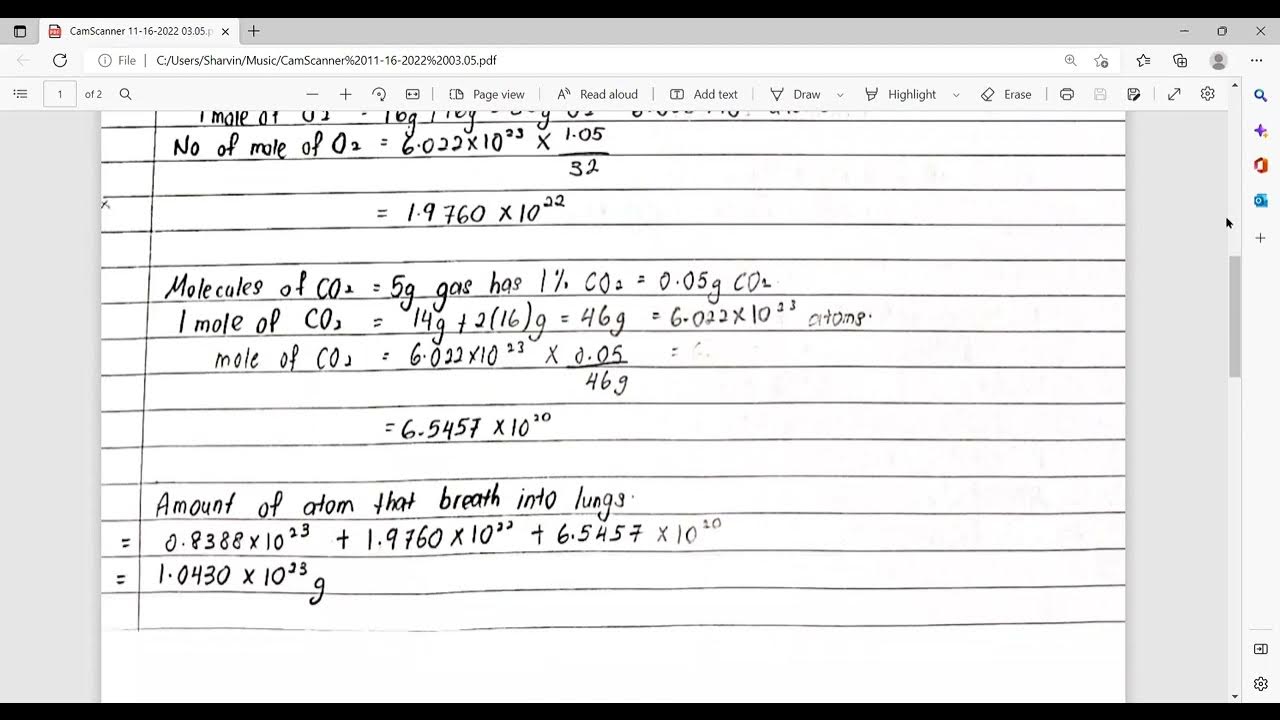 CamScanner 11-16-2022 03.05.p
File C:/Users/Sharvin/Music/CamScanner%2011-16-2022%2003.05.pdf
1 of 2 Page view Read aloud Add text Draw Highlight Erase
1 mole of O2 = 16g
No of mole of O2 = 6.022×10²³ × 1.05
32
x
= 1.9760 ×10²²
Molecules of CO2 = 5g gas has 1% CO2 = 0.05g CO2.
1 mole of CO2 = 14g + 2(16)g = 46g = 6.022×10²³ atoms.
mole of CO2 = 6.022×10²³ × 0.05 = 6.
46g
= 6.5457 ×10²⁰
Amount of atom that breath into lungs.
= 0.8388×10²³ + 1.9760×10²² + 6.5457 ×10²⁰
= 1.0430 ×10²³ g